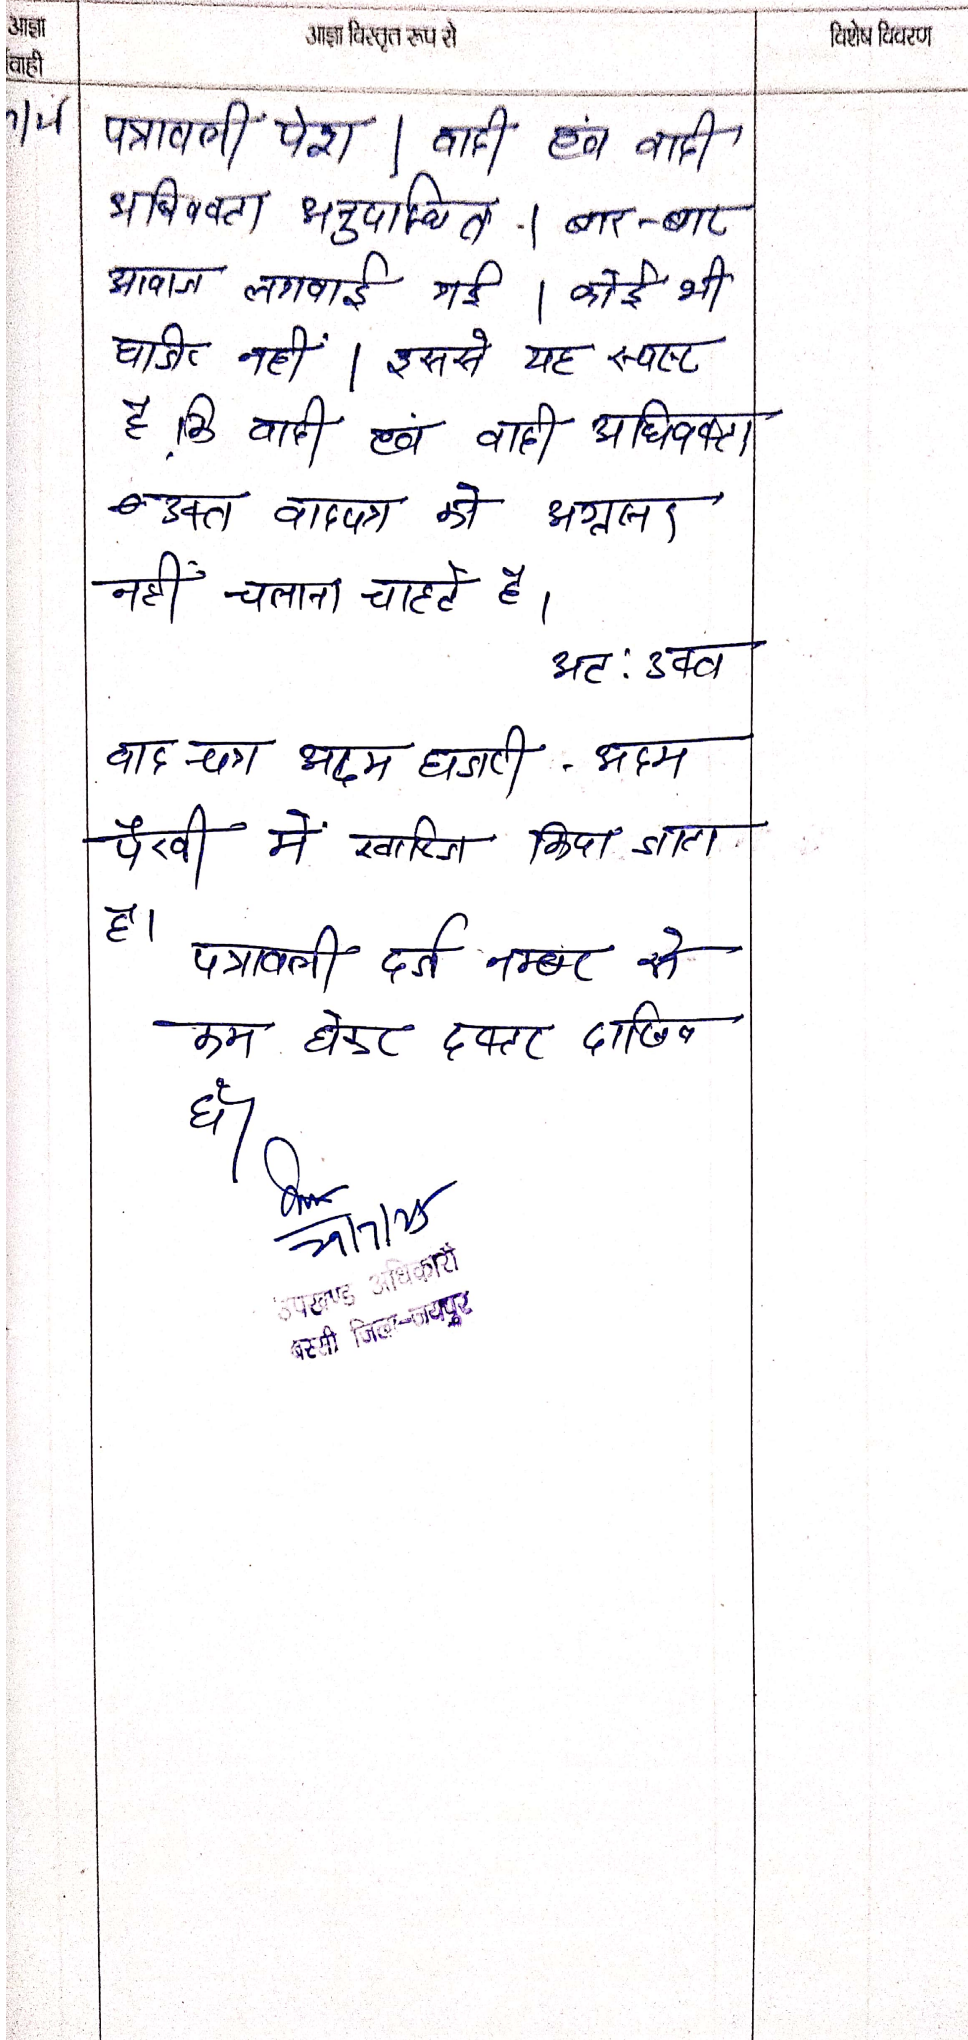 आज्ञा
वाही
आज्ञा विस्तृत रूप से
विशेष विवरण
पत्रावली पेश । वादी एवं वादी
अधिवक्ता अनुपस्थित । बार-बार
आवाज लगवाई गई । कोई भी
हाजिर नहीं । इससे यह स्पष्ट
है कि वादी एवं वादी अधिवक्ता
उक्त वादपत्र को अग्रसर
नहीं चलाना चाहते है ।
अत: उक्त
वाद पत्र अदम हाजरी - अदम
पैरवी में खारिज किया जाता
है ।
पत्रावली दर्ज नम्बर से
कम होकर दफ्तर दाखिल
हो
उपखण्ड अधिकारी
बस्सी जिला-जयपुर